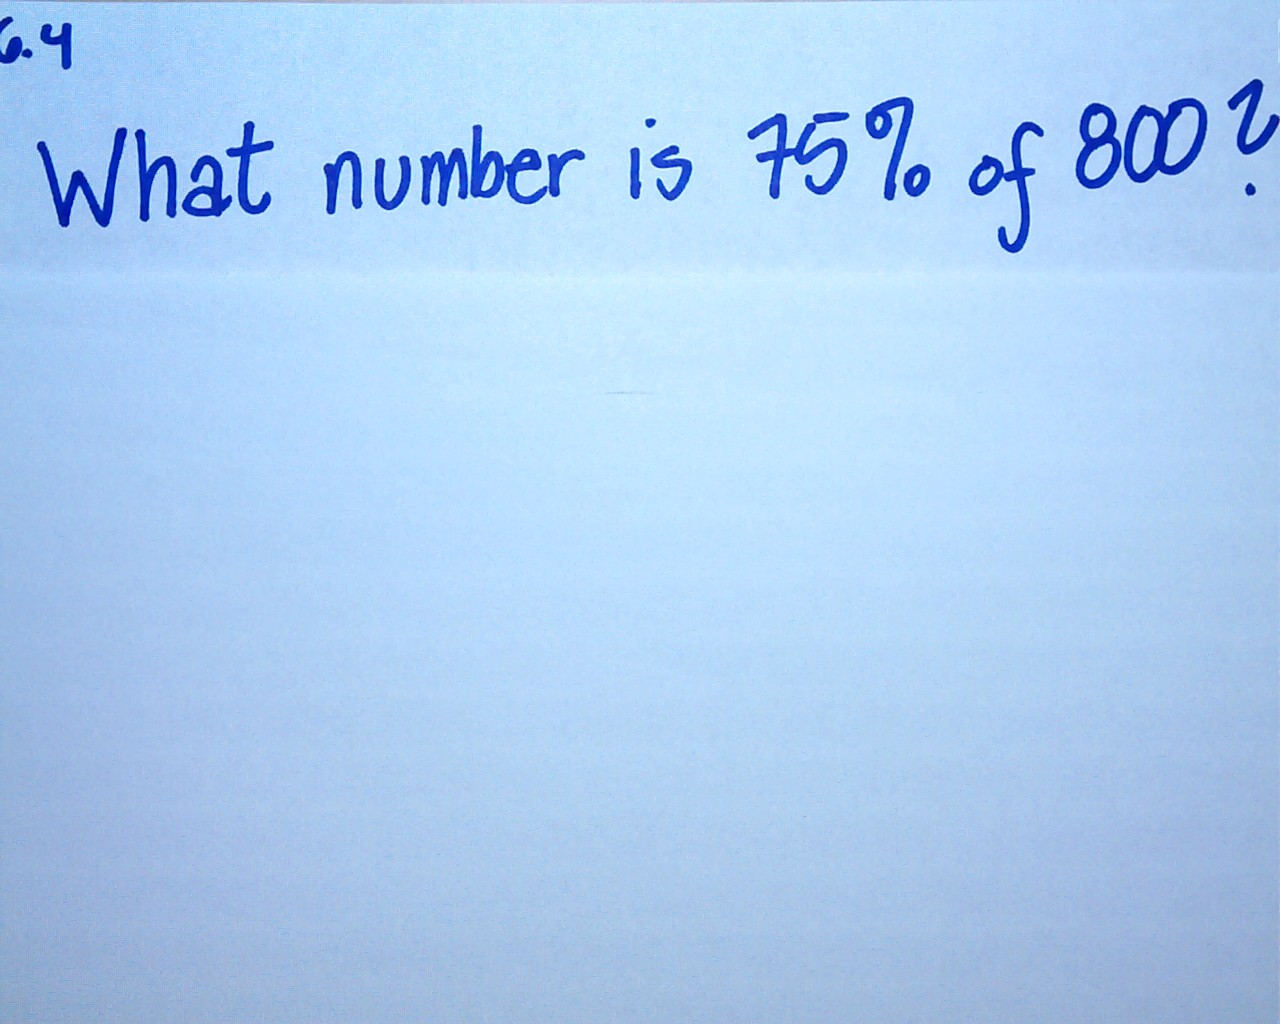 6.4
What number is 75% of 800?